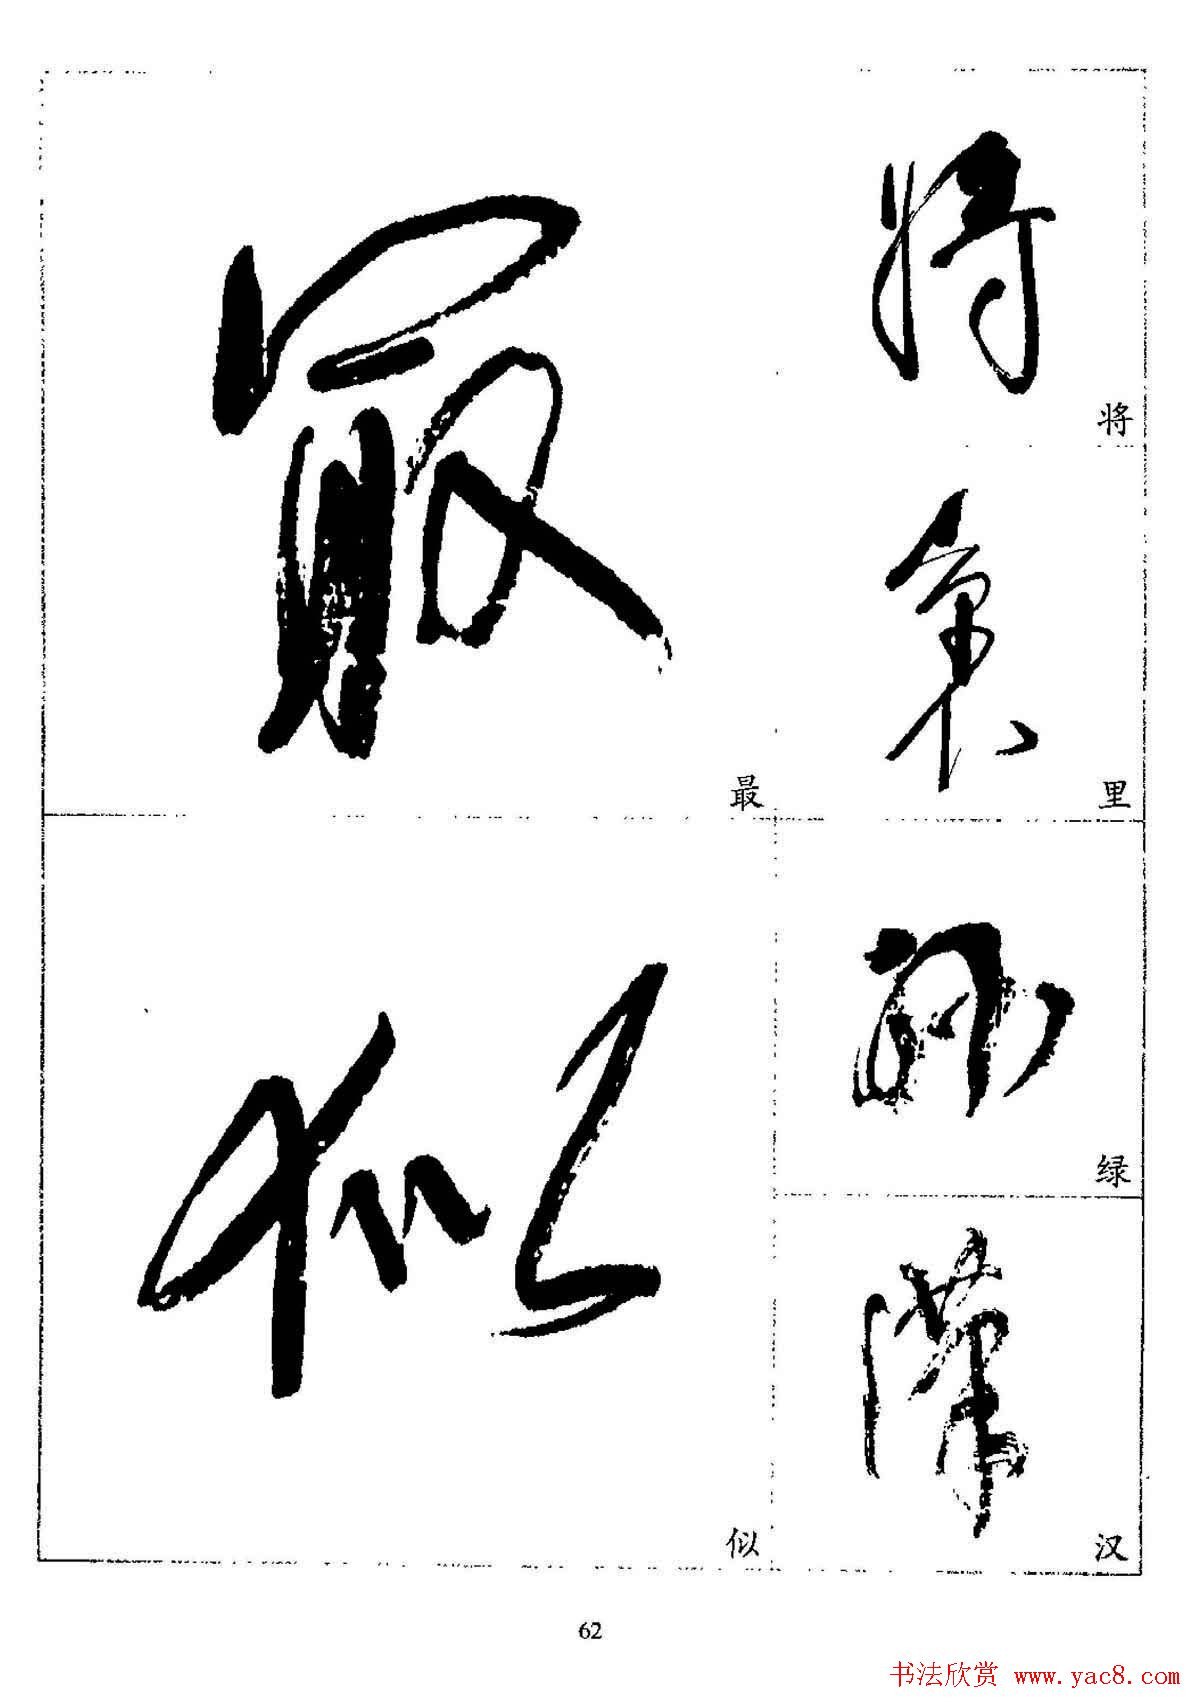 将
将
裏
里
绿
绿
漢
汉
最
最
似
似
62
书法欣赏 www.yac8.com